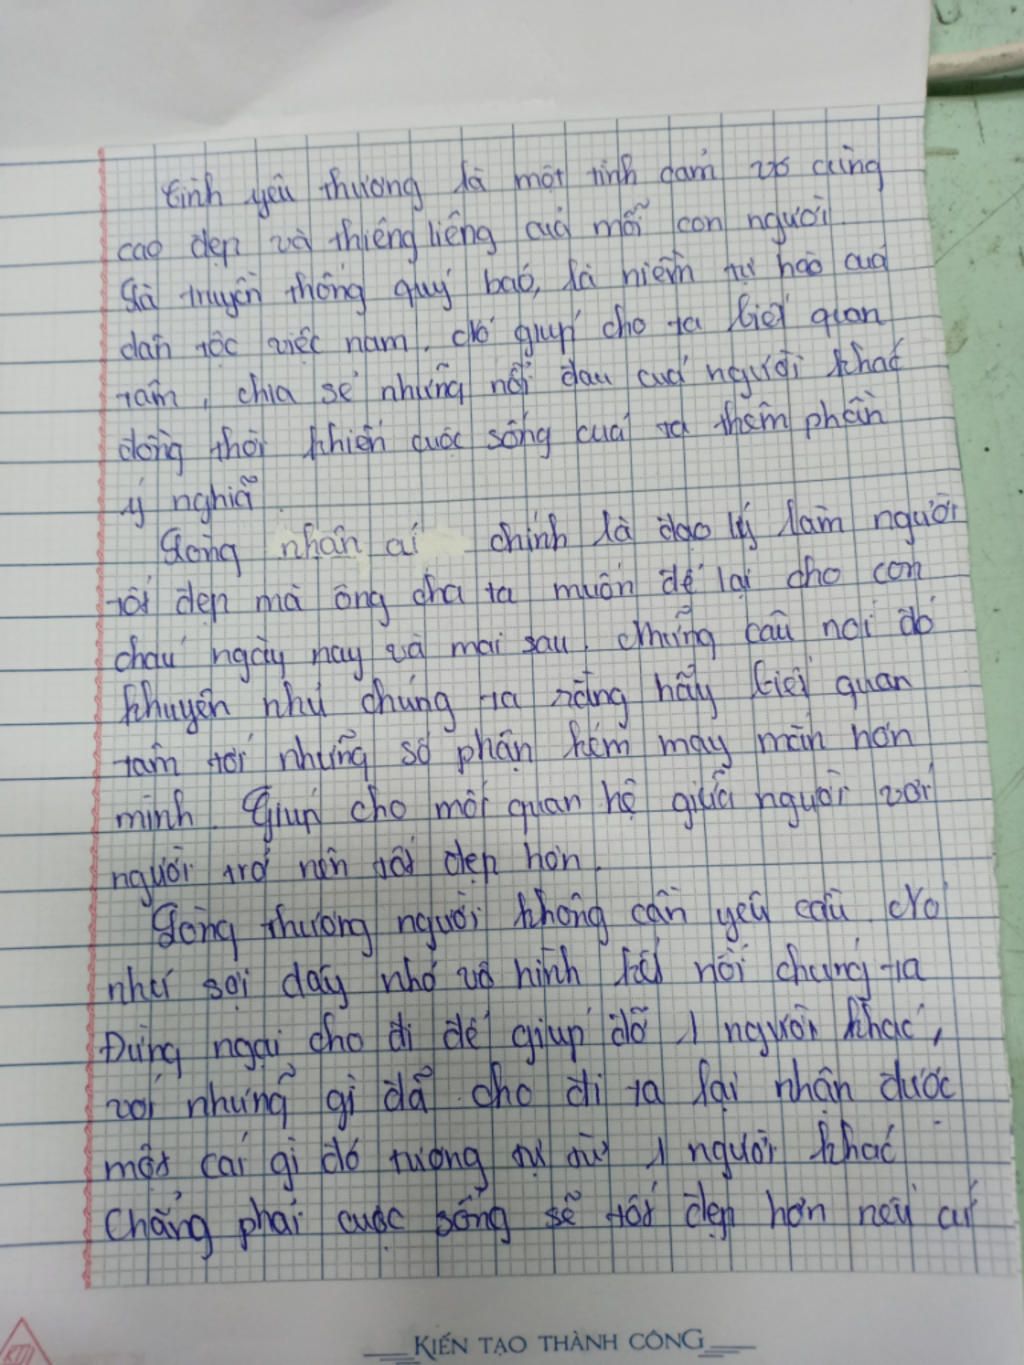 tình yêu thương là một tình cảm vô cùng
cao đẹp và thiêng liêng của mỗi con người.
Là truyền thống quý báo, là niềm tự hào của
dân tộc việt nam. nó giúp cho ta biết quan
tâm, chia sẻ những nỗi đau của người khác
đồng thời khiến cuộc sống của ta thêm phần
ý nghĩa.
Lòng nhân ái chính là đạo lý làm người
tốt đẹp mà ông cha ta muốn để lại cho con
cháu ngày nay và mai sau. Những câu nói đó
khuyên nhủ chúng ta rằng hãy biết quan
tâm tới những số phận kém may mắn hơn
mình. Giúp cho mối quan hệ giữa người với
người trở nên tốt đẹp hơn.
Lòng thương người không cần yêu cầu. nó
như sợi dây nhỏ vô hình kết nối chúng ta
Đừng ngại cho đi để giúp đỡ 1 người khác,
với những gì đã cho đi ta lại nhận được
một cái gì đó tương tự từ 1 người khác
Chẳng phải cuộc sống sẽ tốt đẹp hơn nếu cứ
KIẾN TẠO THÀNH CÔNG